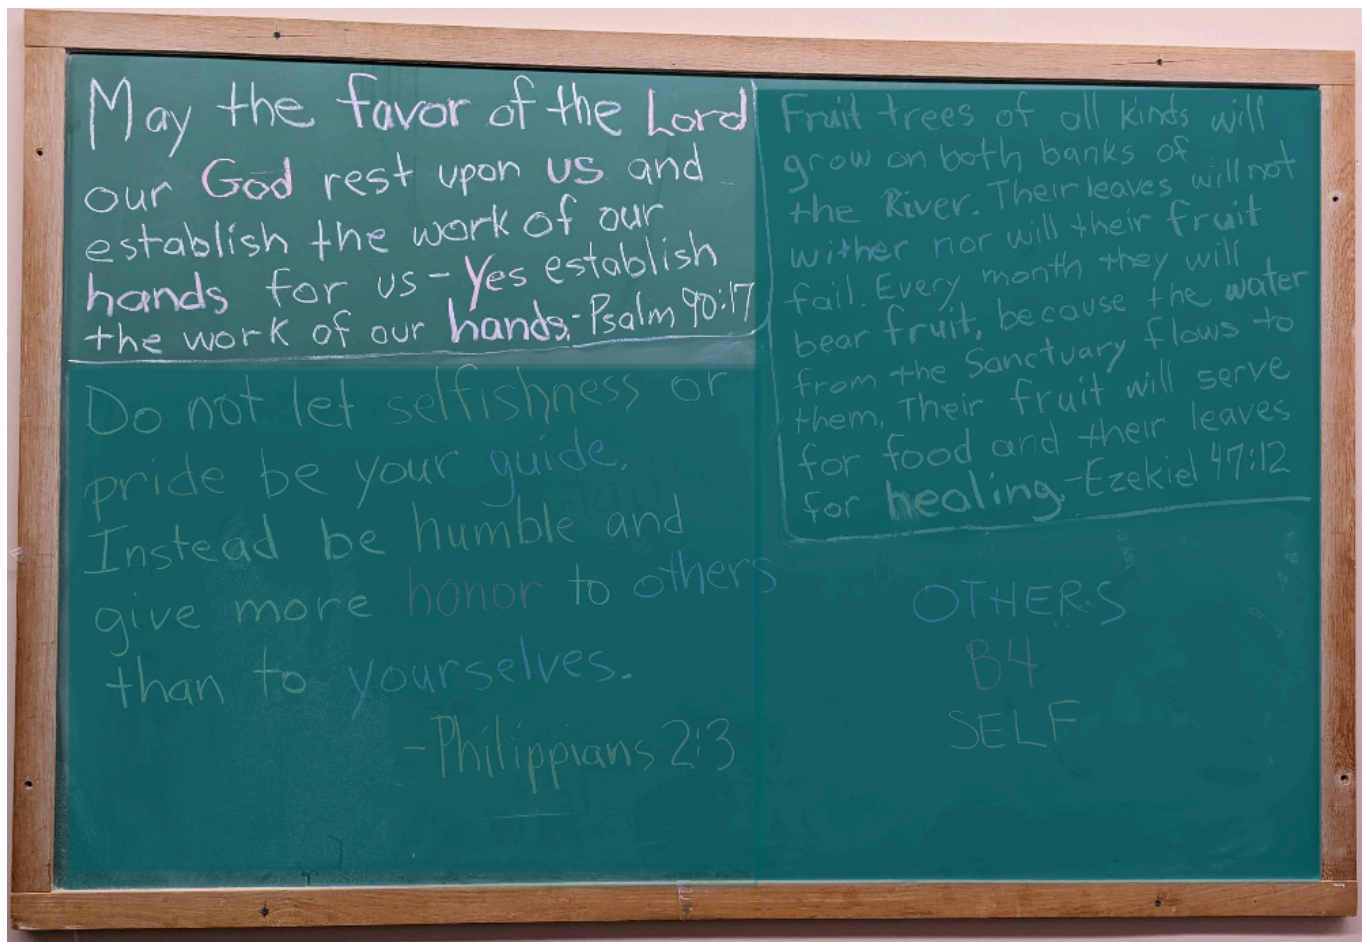 May the favor of the Lord
our God rest upon us and
establish the work of our
hands for us - Yes establish
the work of our hands. - Psalm 90:17
Do not let selfishness or
pride be your guide.
Instead be humble and
give more honor to others
than to yourselves.
- Philippians 2:3
Fruit trees of all kinds will
grow on both banks of
the River. Their leaves will not
wither nor will their fruit
fail. Every month they will
bear fruit, because the water
from the Sanctuary flows to
them. Their fruit will serve
for food and their leaves
for healing. - Ezekiel 47:12
OTHERS
B4
SELF